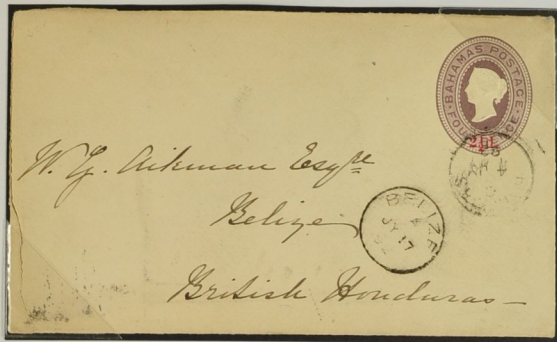 BAHAMAS POSTAGE
FOUR PENCE
W. G. Aikman Esqre
Belize
British Honduras
BELIZE
JY 17